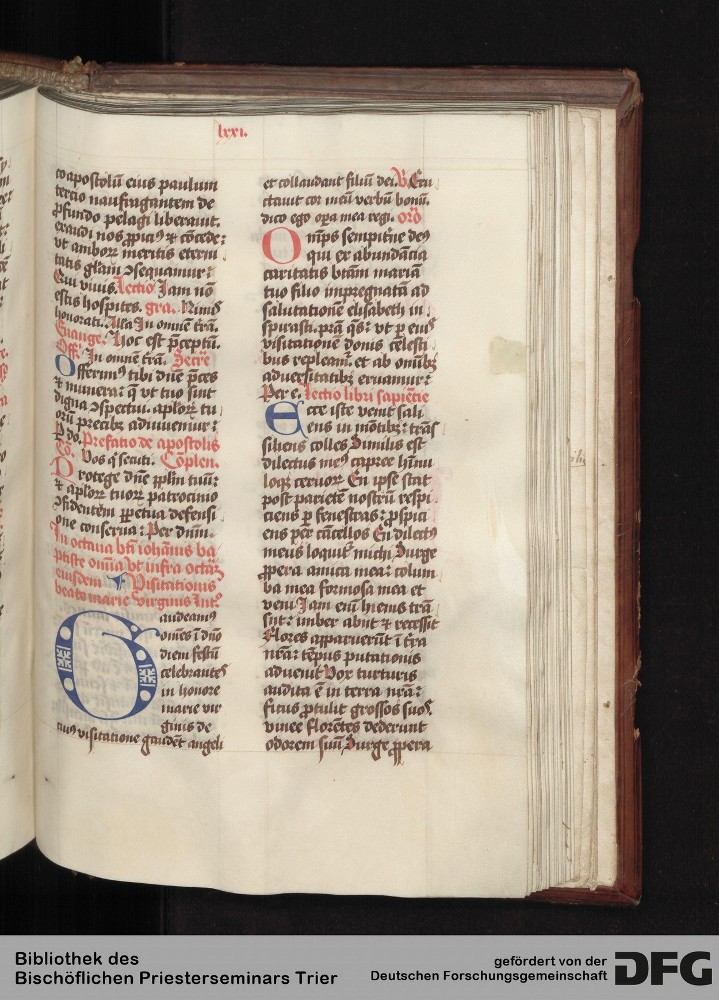 lxxi.
coapostolū eius paulum
tercio naufragantem de
ꝓfundo pelagi liberauit.
exaudi nos ꝓpiciꝰ ⁊ ꝯcede:
vt amboꝝ meritis eterni
tatis gl̄am ꝯsequamur:
Qui viuis. Lectio Iam nō
estis hospites. gra. Nimis
honorati. Alla In omnē trā.
Euange. Hoc est p̄ceptū.
Off. In omnē trā. Secre
Offerimꝰ tibi dn̄e p̄ces
⁊ munera: q̄ vt tuo sint
digna ꝯspectui. apl̄oꝝ tu
oꝝ precibꝫ adiuuemur:
P do. Prefatio de apostolis
Co. Vos q̄ secuti. Cōplen.
Protege dn̄e pplm̄ tuū:
⁊ apl̄oꝝ tuoꝝ patrocinio
ꝯfidentem ꝑpetua defensi
one conserua: Per dnm̄.
In octaua bt̄i iohānis ba
ptiste om̄ia vt infra octāꝫ
eiusdem ¶ Visitationis
beate marie virginis Intꝰ
Gaudeamꝰ
om̄es ī dn̄o
diem festū
celebrantes
in honore
marie vir
ginis de
cuiꝰ visitatione gaudēt angeli
et collaudant filiū dei. V. Eru
ctauit cor meū verbū bonū.
dico ego oꝑa mea regi. orō
Omp̄s sempit̄ne deꝰ
qui ex abundācia
caritatis btām mariā
tuo filio impregnatā ad
salutationē elisabeth in
spirasti. p̄rā q̄s: vt ꝑ eiꝰ
visitationē donis celesti
bus repleam̄: et ab om̄ibꝫ
aduersitatibꝫ eruamur:
Per e. Lectio libri sapiēcie
Ecce iste venit sali
ens in mōtibꝫ: trās
siliens colles Similis est
dilectus meꝰ capree hīnu
loqꝫ ceruoꝝ En ipse stat
post parietē nostrū respi
ciens ꝑ fenestras: ꝓspici
ens per cācellos En dilectꝰ
meus loquit᷑ michi Surge
ꝓpera amica mea: colum
ba mea formosa mea et
veni Iam em̄ hiems trā
sijt: imber abijt ⁊ recessit
Flores apparuerūt ī t̄ra
nr̄a: tēpus putationis
aduenit Vox turturis
audita ē in terra nr̄a:
ficus ꝓtulit grossos suos
vinee florētes dederunt
odorem suū Surge ꝓpera
Bibliothek des
Bischöflichen Priesterseminars Trier
gefördert von der
Deutschen Forschungsgemeinschaft
DFG